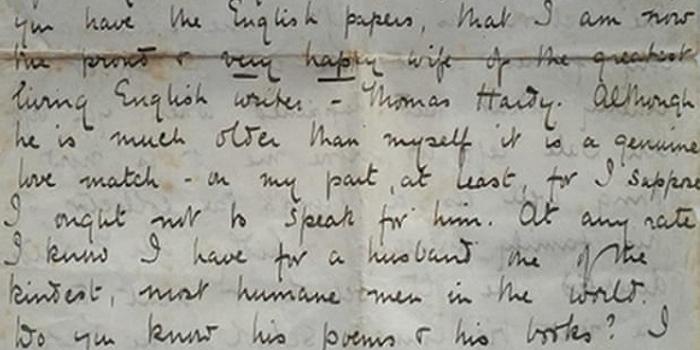 you have the English papers, that I am now
the proud & very happy wife of the greatest
living English writer - Thomas Hardy. Although
he is much older than myself it is a genuine
love match - on my part, at least, for I suppose
I ought not to speak for him. At any rate
I know I have for a husband one of the
kindest, most humane men in the world.
Do you know his poems & his books? I